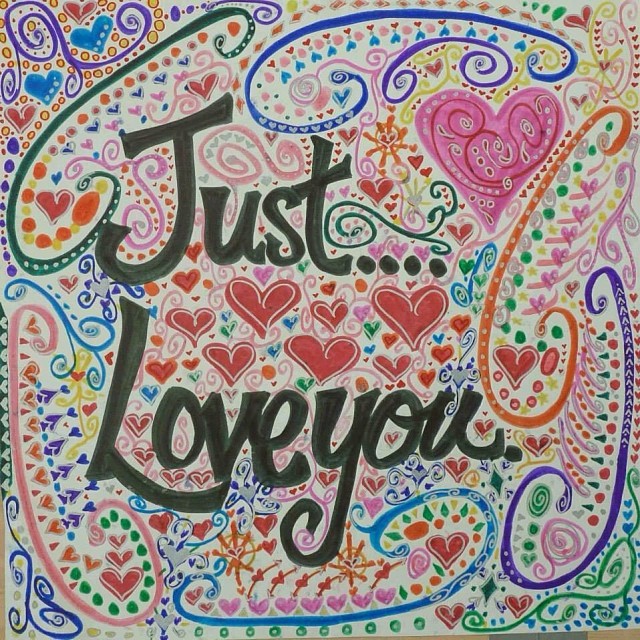 Just....
Love you.